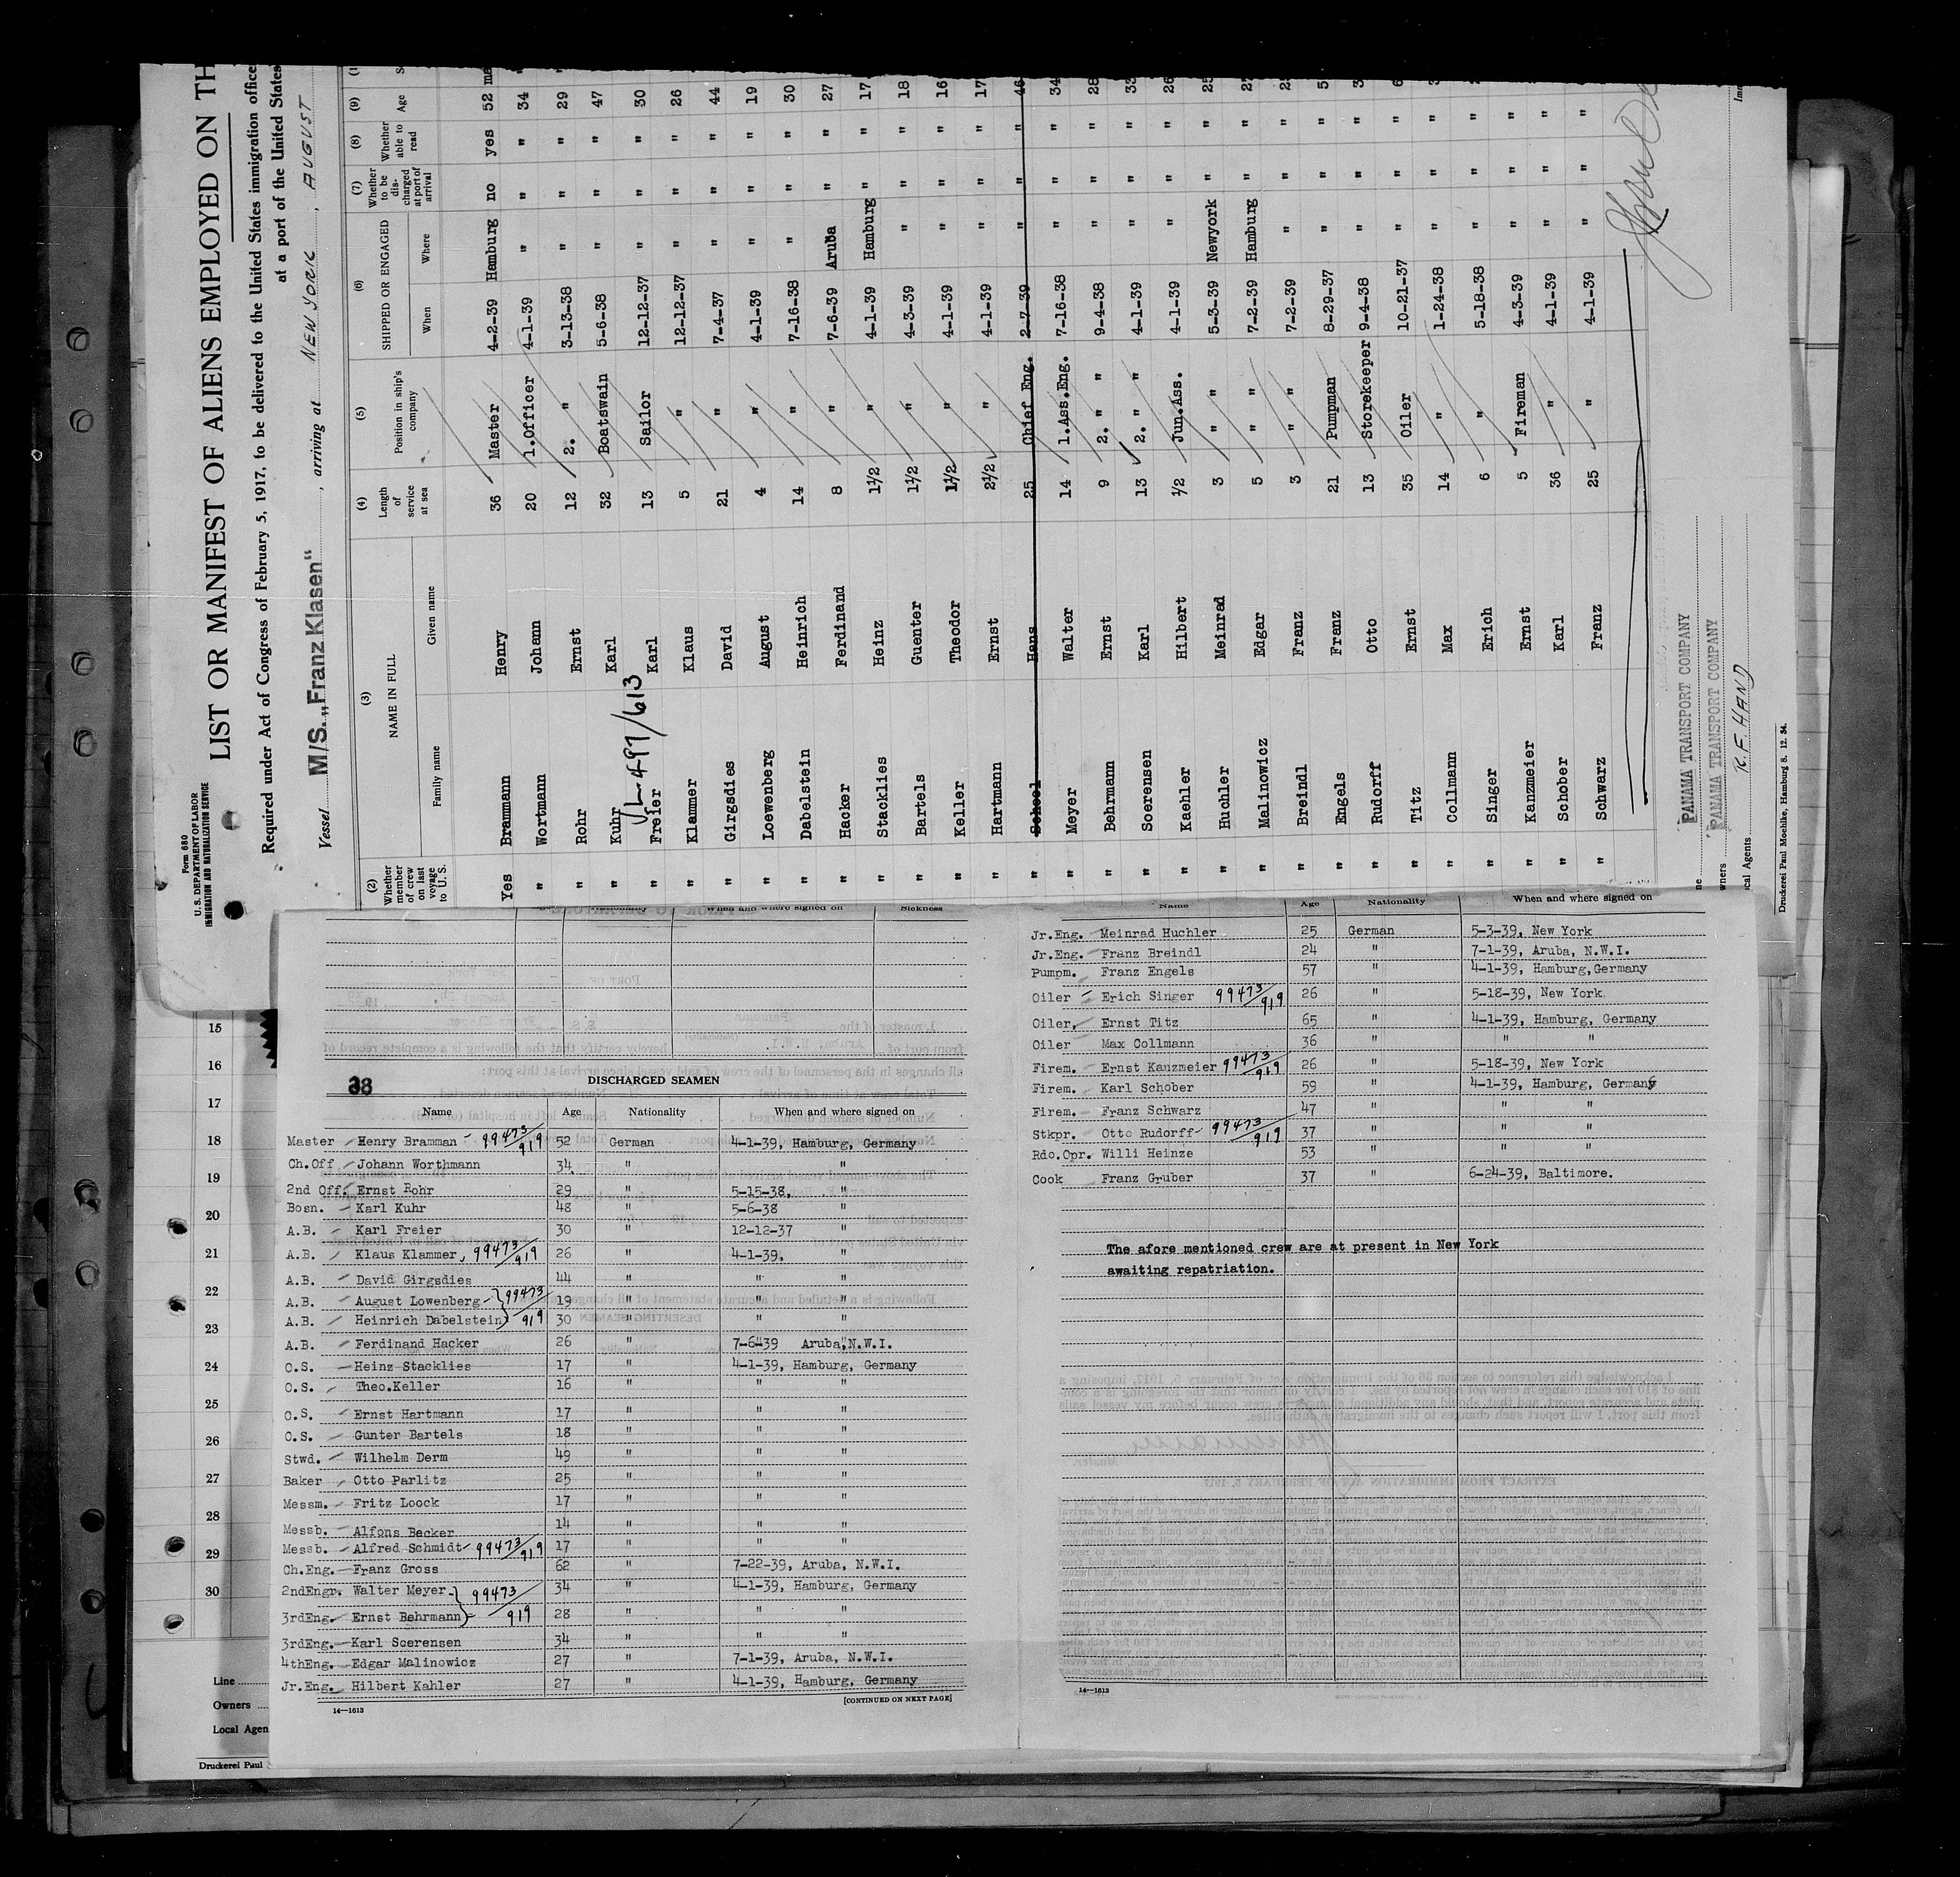 Form 680
U. S. DEPARTMENT OF LABOR
IMMIGRATION AND NATURALIZATION SERVICE
LIST OR MANIFEST OF ALIENS EMPLOYED ON TH
Required under Act of Congress of February 5, 1917, to be delivered to the United States immigration office
at a port of the United States
Vessel M/S. „Franz Klasen“, arriving at NEW YORK, AUGUST
(2) (3) (4) (5) (6) (7) (8) (9)
Whether member of crew on last voyage to U. S. NAME IN FULL Family name Given name Length of service at sea Position in ship's company SHIPPED OR ENGAGED When Where Whether to be dis-charged at port of arrival Whether able to read Age
Yes Brammann Henry 36 Master 4-2-39 Hamburg no yes 52
" Wortmann Johann 20 1.Officer 4-1-39 " " " 34
" Rohr Ernst 12 2. " 3-13-38 " " " 29
" Kuhr Karl 32 Boatswain 5-6-38 " " " 47
VL-497/613
" Freier Karl 13 Sailor 12-12-37 " " " 30
" Klammer Klaus 5 " 12-12-37 " " " 26
" Girgsdies David 21 " 7-4-37 " " " 44
" Loewenberg August 4 " 4-1-39 " " " 19
" Dabelstein Heinrich 14 " 7-16-38 " " " 30
" Hacker Ferdinand 8 " 7-6-39 Aruba " " 27
" Stacklies Heinz 1½ " 4-1-39 Hamburg " " 17
" Bartels Guenter 1½ " 4-3-39 " " " 18
" Keller Theodor 1½ " 4-1-39 " " " 16
" Hartmann Ernst 2½ " 4-1-39 " " " 17
" Scheel Hans 25 Chief Eng. 2-7-39 " " " 46
" Meyer Walter 14 1.Ass.Eng. 7-16-38 " " " 34
" Behrmann Ernst 9 2. " " 9-4-38 " " " 28
" Soerensen Karl 13 2. " " 4-1-39 " " " 33
" Kaehler Hilbert ½ Jun.Ass. 4-1-39 " " " 26
" Huchler Meinrad 3 " " 5-3-39 Newyork " " 25
" Malinowicz Edgar 5 " " 7-2-39 Hamburg " " 27
" Breindl Franz 3 " " 7-2-39 " " "
" Engels Franz 21 Pumpman 8-29-37 " " "
" Rudorff Otto 13 Storekeeper 9-4-38 " " "
" Titz Ernst 35 Oiler 10-21-37 " " "
" Collmann Max 14 " 1-24-38 " " "
" Singer Erich 6 " 5-18-38 " " "
" Kanzmeier Ernst 5 Fireman 4-3-39 " " "
" Schober Karl 36 " 4-1-39 " " "
" Schwarz Franz 25 " 4-1-39 " " "
PANAMA TRANSPORT COMPANY
PANAMA TRANSPORT COMPANY
cal Agents R. F. HAND
Druckerei Paul Moehlke, Hamburg 8. 12. 34.
15
16
17
18
19
20
21
22
23
24
25
26
27
28
29
30
Line
Owners
Local Agen
Druckerei Paul
When and where signed on Sickness
38
DISCHARGED SEAMEN
Name Age Nationality When and where signed on
Master Henry Bramman 99473/919 52 German 4-1-39, Hamburg, Germany
Ch.Off Johann Worthmann 34 " "
2nd Off. Ernst Rohr 29 " 5-15-38, "
Bosn. Karl Kuhr 48 " 5-6-38 "
A.B. Karl Freier 30 " 12-12-37 "
A.B. Klaus Klammer, 99473/919 26 " 4-1-39, "
A.B. David Girgsdies 44 " " "
A.B. August Lowenberg 99473 19 " " "
A.B. Heinrich Dabelstein 919 30 " " "
A.B. Ferdinand Hacker 26 " 7-6-39 Aruba, N.W.I.
O.S. Heinz Stacklies 17 " 4-1-39, Hamburg, Germany
O.S. Theo.Keller 16 " " "
O.S. Ernst Hartmann 17 " " "
O.S. Gunter Bartels 18 " " "
Stwd. Wilhelm Derm 49 " " "
Baker Otto Parlitz 25 " " "
Messm. Fritz Loock 17 " " "
Messb. Alfons Becker 14 " " "
Messb. Alfred Schmidt 99473/919 17 " " "
Ch.Eng. Franz Gross 62 " 7-22-39, Aruba, N.W.I.
2ndEngr. Walter Meyer 99473 34 " 4-1-39, Hamburg, Germany
3rdEng. Ernst Behrmann 919 28 " " "
3rdEng. Karl Soerensen 34 " " "
4thEng. Edgar Malinowicz 27 " 7-1-39, Aruba, N.W.I.
Jr.Eng. Hilbert Kahler 27 " 4-1-39, Hamburg, Germany
14—1613 [CONTINUED ON NEXT PAGE]
Name Age Nationality When and where signed on
Jr.Eng. Meinrad Huchler 25 German 5-3-39, New York
Jr.Eng. Franz Breindl 24 " 7-1-39, Aruba, N.W.I.
Pumpm. Franz Engels 57 " 4-1-39, Hamburg,Germany
Oiler Erich Singer 99473/919 26 " 5-18-39, New York
Oiler, Ernst Titz 65 " 4-1-39, Hamburg, Germany
Oiler Max Collmann 36 " " "
Firem. Ernst Kanzmeier 99473/919 26 " 5-18-39, New York
Firem. Karl Schober 59 " 4-1-39, Hamburg, Germany
Firem. Franz Schwarz 47 " " "
Stkpr. Otto Rudorff 99473/919 37 " " "
Rdo.Opr. Willi Heinze 53 " " "
Cook Franz Gruber 37 " 6-24-39, Baltimore.
The afore mentioned crew are at present in New York
awaiting repatriation.
14—1613